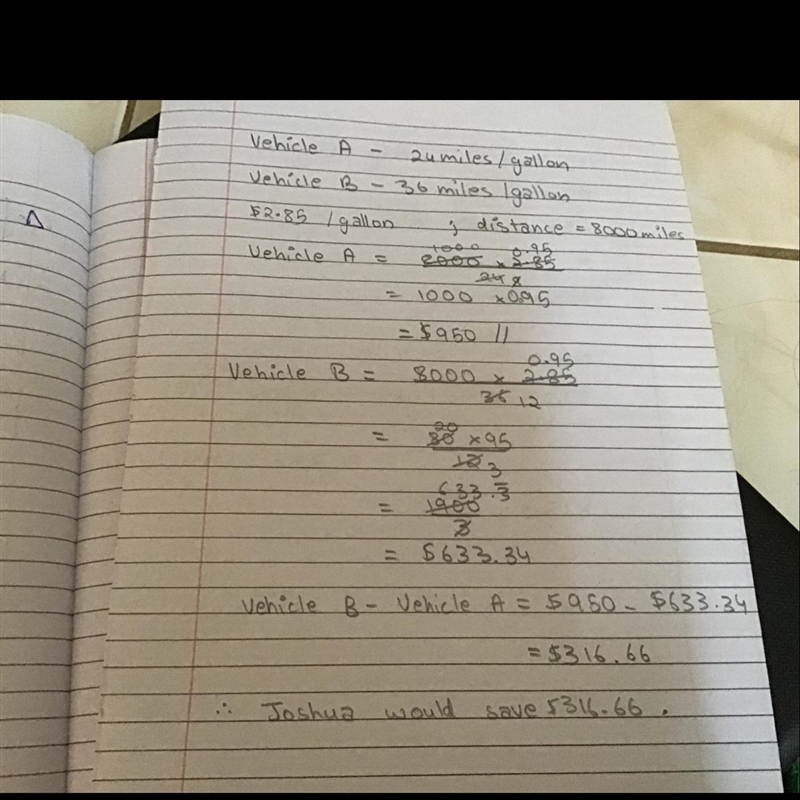 Δ
Vehicle A - 24 miles/gallon
Vehicle B - 36 miles/gallon
$2.85 /gallon ; distance = 8000 miles
1000 0.95
Vehicle A = 8000 x 2.85
24 8
= 1000 x 0.95
= $950 //
0.95
Vehicle B = 8000 x 2.85
36 12
20
= 80 x 95
12 3
633.3̅
= 1900
3
= $633.34
Vehicle B - Vehicle A = $950 - $633.34
= $316.66
∴ Joshua would save $316.66.